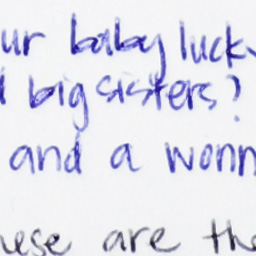 ur baby luck
big sisters?
and a wonn
hese are the